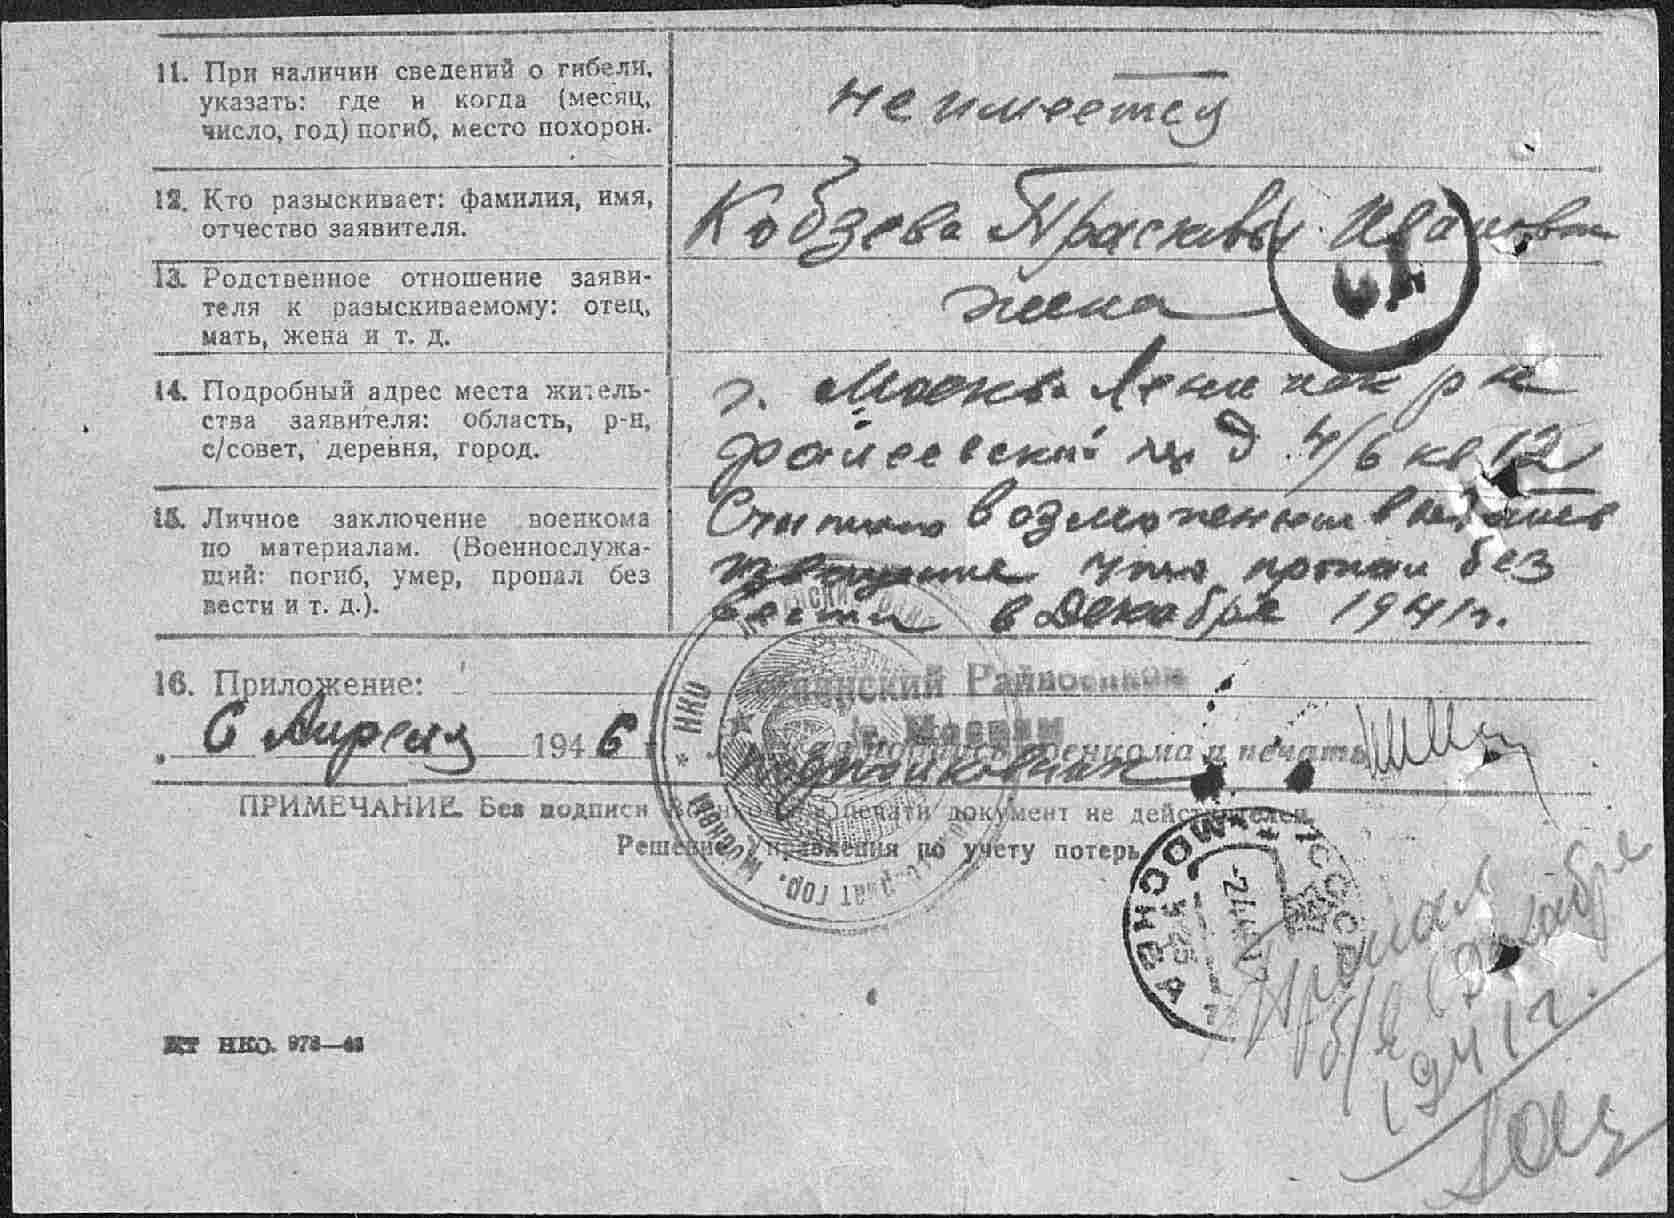 11. При наличии сведений о гибели,
указать: где и когда (месяц,
число, год) погиб, место похорон.
не имеется
12. Кто разыскивает: фамилия, имя,
отчество заявителя.
Кобзева Прасковья Ивановна
13. Родственное отношение заяви-
теля к разыскиваемому: отец,
мать, жена и т. д.
жена
14. Подробный адрес места житель-
ства заявителя: область, р-н,
с/совет, деревня, город.
г. Москва Ленинск р н
фалеевский пер д 4/6 кв 12
15. Личное заключение военкома
по материалам. (Военнослужа-
щий: погиб, умер, пропал без
вести и т. д.).
Считаю возможным
извещение что пропал без
вести в Декабре 1941 г.
16. Приложение:
Райвоенком
г. Москвы
6 Апреля 1946 г.
военкома и печать
подполковник
ПРИМЕЧАНИЕ. Без подписи военкома и печати документ не действителен.
Решение Управления по учету потерь
НКО
гор. Москвы
МОСКВА
СССР
Пропал
б/в Декабре
1941 г.
НКО. 978—46